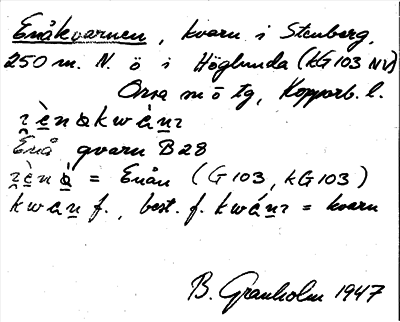 Enåkvarnen, kvarn i Stenberg,
250 m. N. ö i Höglunda (KG103 NV)
Orsa m ö tg, Kopparb. l.
Enå qvarn B28
= Enån (G103, KG103)
f., best. f. = kvarn
B. Granholm 1947